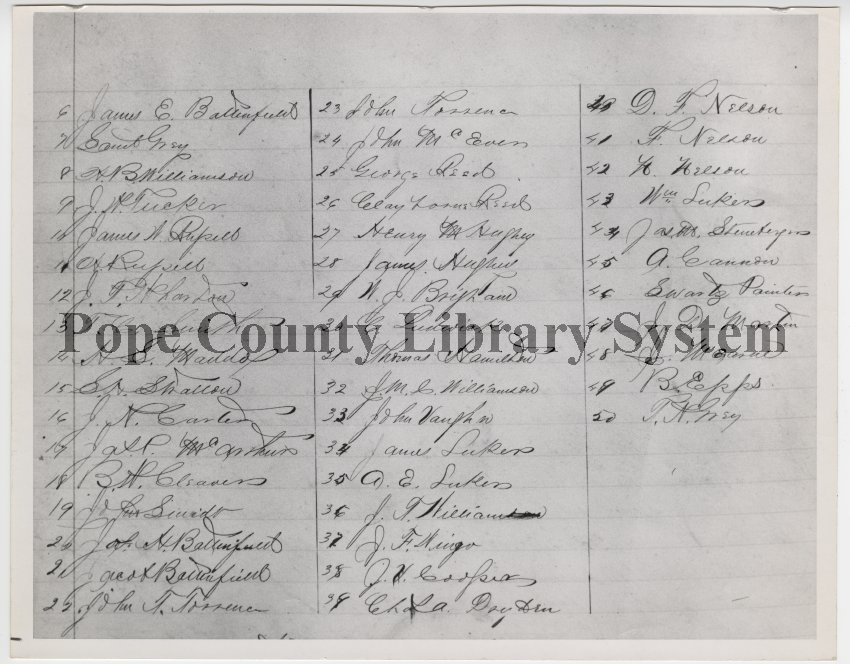 6 James E. Battenfield
7 Saml Grey
8 A B Williamson
9 J. H. Tucker
10 James N. Russell
11 Russell
12 J. F.
13
14 A. S. Maddox
15 Stratton
16 J. N. Carter
17 Jas. P. McArthurs
18 B. H. Cleavers
19 John
20 Jas. H. Battenfield
21 Jacob Battenfield
22 John T. Torrence
23 John Torrence
24 John McEvers
25 George Reed
26 Clayborne Reed
27 Henry M Hughey
28 James Hughes
29 W. J. Brigham
30
31 Thomas Hamilton
32 J. M. C. Williamson
33 John Vaughn
34 James Lukers
35 A. E. Lukers
36 J. T. Williamson
37 J. F. Wingo
38 J. V. Coopers
39 Chas. A. Dryden
40 D. F. Nelson
41 F. Nelson
42 N. Nelson
43 Wm. Lukers
44 Jas. M.
45 A. Cannon
46 Swartz Painters
47 J. D. Martin
48 J.
49 B. Epps.
50 T. H. Grey
Pope County Library System